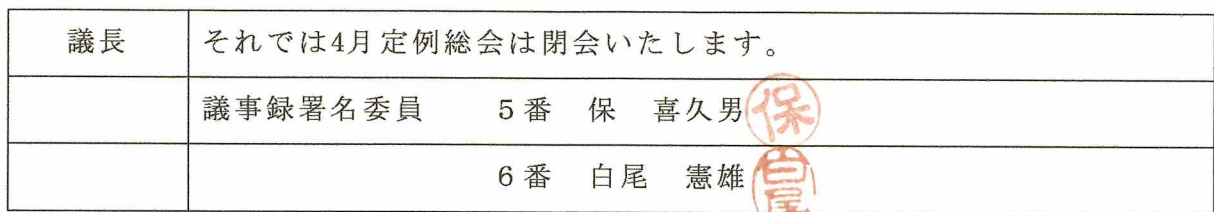 議長 それでは4月定例総会は閉会いたします。
議事録署名委員 5番 保 喜久男 保
6番 白尾 憲雄 白尾